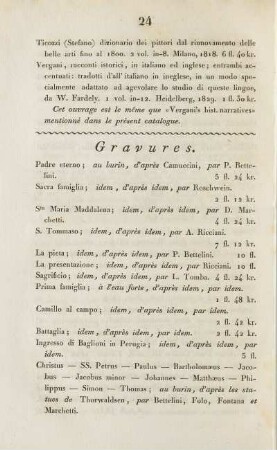 24
Ticozzi (Stefano) dizionario dei pittori dal rinnovamento delle
belle arti fino al 1800. 2 vol. in-8. Milano, 1818. 6 fl. 40 kr.
Vergani, racconti istorici, in italiano ed inglese; entrambi ac-
centuati: tradotti d'all' italiano in ineglese, in un modo spe-
cialmente adattato ad agevolare lo studio di queste lingue,
da W. Fardely. 1 vol. in-12. Heidelberg, 1829. 1 fl. 30 kr.
Cet ouvrage est le même que »Vergani's hist. narratives«
mentionné dans le présent catalogue.
Gravures.
Padre eterno; au burin, d'après Camuccini, par P. Bette-
lini. 5 fl. 24 kr.
Sacra famiglia; idem, d'après idem, par Roschweis.
2 fl. 12 kr.
Sta Maria Maddalena; idem, d'après idem, par D. Mar-
chetti. 4 fl. 24 kr.
S. Tommaso; idem, d'après idem, par A. Ricciani.
7 fl. 12 kr.
La pieta; idem, d'après idem, par P. Bettelini. 10 fl.
La presentazione; idem, d'après idem, par Ricciani. 10 fl.
Sagrificio; idem, d'après idem, par L. Tomba. 4 fl. 24 kr.
Prima famiglia; à l'eau forte, d'après idem, par idem.
1 fl. 48 kr.
Camillo al campo; idem, d'après idem, par idem.
2 fl. 42 kr.
Battaglia; idem, d'après idem, par idem. 2 fl. 42 kr.
Ingresso di Baglioni in Perugia; idem, d'après idem, par
idem. 5 fl.
Christus — SS. Petrus — Paulus — Bartholomæus — Jaco-
bus — Jacobus minor — Johannes — Matthæus — Phi-
lippus — Simon — Thomas; au burin, d'après les sta-
tues de Thorwaldsen, par Bettelini, Folo, Fontana et
Marchetti.